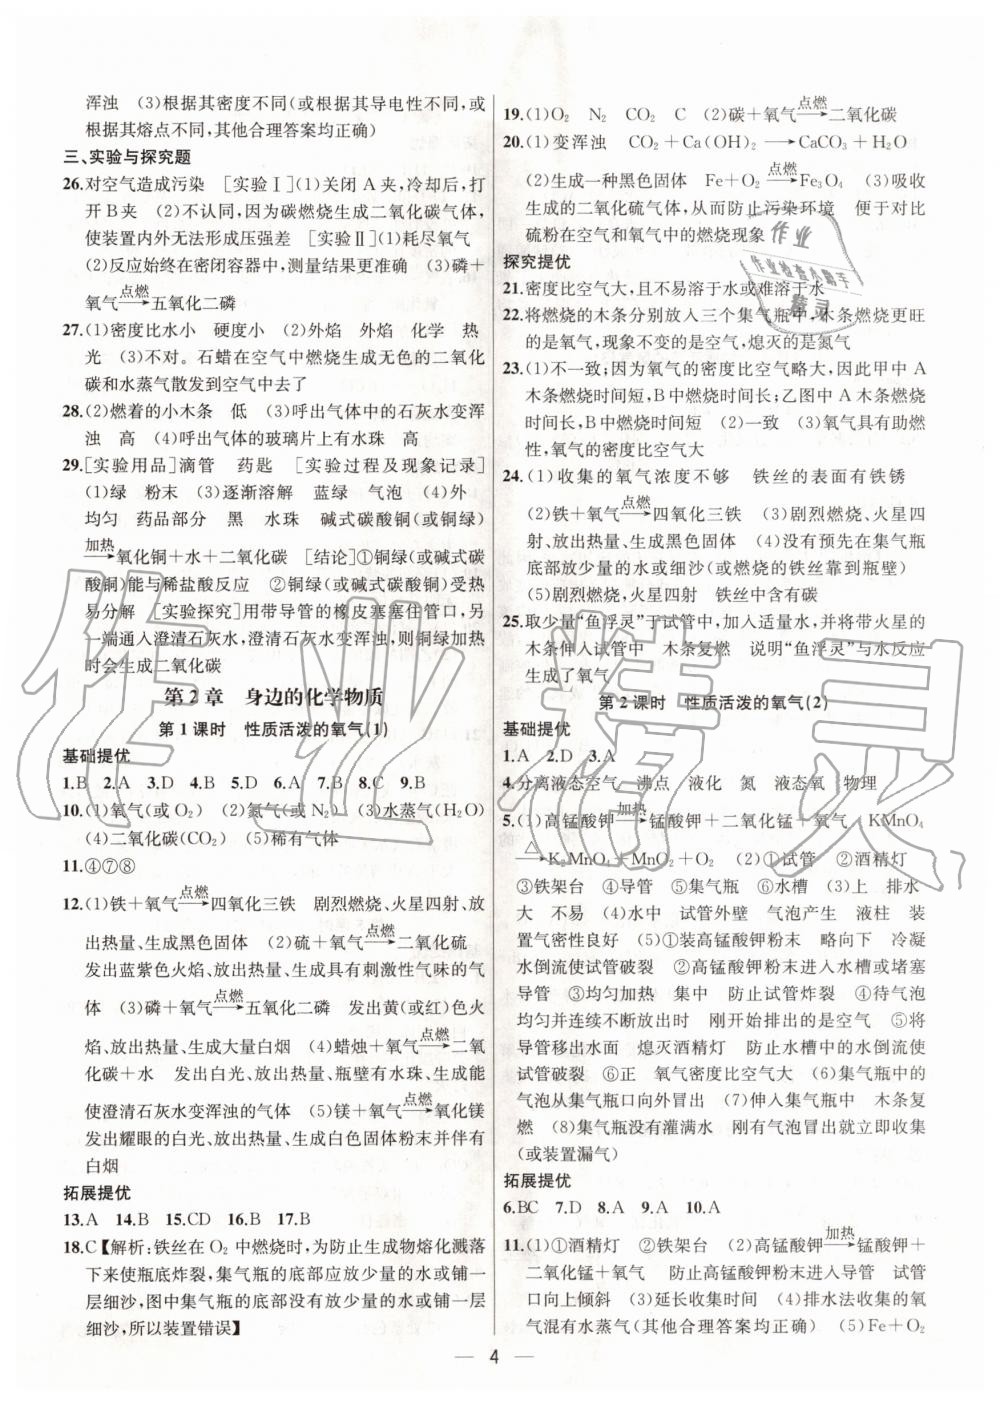 浑浊　(3)根据其密度不同(或根据其导电性不同,或
根据其熔点不同,其他合理答案均正确)
三、实验与探究题
26.对空气造成污染　[实验Ⅰ](1)关闭 A 夹,冷却后,打
开 B 夹　(2)不认同,因为碳燃烧生成二氧化碳气体,
使装置内外无法形成压强差　[实验Ⅱ](1)耗尽氧气
(2)反应始终在密闭容器中,测量结果更准确　(3)磷＋
氧气 点燃→ 五氧化二磷
27.(1)密度比水小　硬度小　(2)外焰　外焰　化学　热
光　(3)不对。石蜡在空气中燃烧生成无色的二氧化
碳和水蒸气散发到空气中去了
28.(2)燃着的小木条　低　(3)呼出气体中的石灰水变浑
浊　高　(4)呼出气体的玻璃片上有水珠　高
29.[实验用品]滴管　药匙　[实验过程及现象记录]
(1)绿　粉末　(3)逐渐溶解　蓝绿　气泡　(4)外
均匀　药品部分　黑　水珠　碱式碳酸铜(或铜绿)
加热→ 氧化铜＋水＋二氧化碳　[结论]①铜绿(或碱式碳
酸铜)能与稀盐酸反应　②铜绿(或碱式碳酸铜)受热
易分解　[实验探究]用带导管的橡皮塞塞住管口,另
一端通入澄清石灰水,澄清石灰水变浑浊,则铜绿加热
时会生成二氧化碳
第 2 章　身边的化学物质
第 1 课时　性质活泼的氧气(1)
基础提优
1.B　2.A　3.D　4.B　5.D　6.A　7.B　8.C　9.B
10.(1)氧气(或 O₂)　(2)氮气(或 N₂)　(3)水蒸气(H₂O)
(4)二氧化碳(CO₂)　(5)稀有气体
11.④⑦⑧
12.(1)铁＋氧气 点燃→ 四氧化三铁　剧烈燃烧、火星四射、放
出热量、生成黑色固体　(2)硫＋氧气 点燃→ 二氧化硫
发出蓝紫色火焰、放出热量、生成具有刺激性气味的气
体　(3)磷＋氧气 点燃→ 五氧化二磷　发出黄(或红)色火
焰、放出热量、生成大量白烟　(4)蜡烛＋氧气 点燃→ 二氧
化碳＋水　发出白光、放出热量、瓶壁有水珠、生成能
使澄清石灰水变浑浊的气体　(5)镁＋氧气 点燃→ 氧化镁
发出耀眼的白光、放出热量、生成白色固体粉末并伴有
白烟
拓展提优
13.A　14.B　15.CD　16.B　17.B
18.C【解析:铁丝在 O₂ 中燃烧时,为防止生成物熔化溅落
下来使瓶底炸裂,集气瓶的底部应放少量的水或铺一
层细沙,图中集气瓶的底部没有放少量的水或铺一层
细沙,所以装置错误】
19.(1)O₂　N₂　CO₂　C　(2)碳＋氧气 点燃→ 二氧化碳
20.(1)变浑浊　CO₂＋Ca(OH)₂ → CaCO₃＋H₂O
(2)生成一种黑色固体　Fe＋O₂ 点燃→ Fe₃O₄　(3)吸收
生成的二氧化硫气体,从而防止污染环境　便于对比
硫粉在空气和氧气中的燃烧现象
探究提优
21.密度比空气大,且不易溶于水或难溶于水
22.将燃烧的木条分别放入三个集气瓶中,木条燃烧更旺
的是氧气,现象不变的是空气,熄灭的是氮气
23.(1)不一致;因为氧气的密度比空气略大,因此甲中 A
木条燃烧时间短,B 中燃烧时间长;乙图中 A 木条燃烧
时间长,B 中燃烧时间短　(2)一致　(3)氧气具有助燃
性,氧气的密度比空气大
24.(1)收集的氧气浓度不够　铁丝的表面有铁锈
(2)铁＋氧气 点燃→ 四氧化三铁　(3)剧烈燃烧、火星四
射、放出热量、生成黑色固体　(4)没有预先在集气瓶
底部放少量的水或细沙(或燃着的铁丝靠到瓶壁)
(5)剧烈燃烧,火星四射　铁丝中含有碳
25.取少量“鱼浮灵”于试管中,加入适量水,并将带火星的
木条伸入试管中　木条复燃　说明“鱼浮灵”与水反应
生成了氧气
第 2 课时　性质活泼的氧气(2)
基础提优
1.A　2.D　3.A
4.分离液态空气　沸点　液化　氮　液态氧　物理
5.(1)高锰酸钾 加热→ 锰酸钾＋二氧化锰＋氧气　KMnO₄
△→ K₂MnO₄＋MnO₂＋O₂　(2)①试管　②酒精灯
③铁架台　④导管　⑤集气瓶　⑥水槽　(3)上　排水
大　不易　(4)水中　试管外壁　气泡产生　液柱　装
置气密性良好　(5)①装高锰酸钾粉末　略向下　冷凝
水倒流使试管破裂　②高锰酸钾粉末进入水槽或堵塞
导管　③均匀加热　集中　防止试管炸裂　④待气泡
均匀并连续不断放出时　刚开始排出的是空气　⑤将
导管移出水面　熄灭酒精灯　防止水槽中的水倒流使
试管破裂　⑥正　氧气密度比空气大　(6)集气瓶中的
气泡从集气瓶口向外冒出　(7)伸入集气瓶中　木条复
燃　(8)集气瓶没有灌满水　刚有气泡冒出就立即收集
(或装置漏气)
拓展提优
6.BC　7.D　8.A　9.A　10.A
11.(1)①酒精灯　②铁架台　(2)高锰酸钾 加热→ 锰酸钾＋
二氧化锰＋氧气　防止高锰酸钾粉末进入导管　试管
口向上倾斜　(3)延长收集时间　(4)排水法收集的氧
气混有水蒸气(其他合理答案均正确)　(5)Fe＋O₂
— 4 —
作业
作业检查小助手
精灵
作业精灵